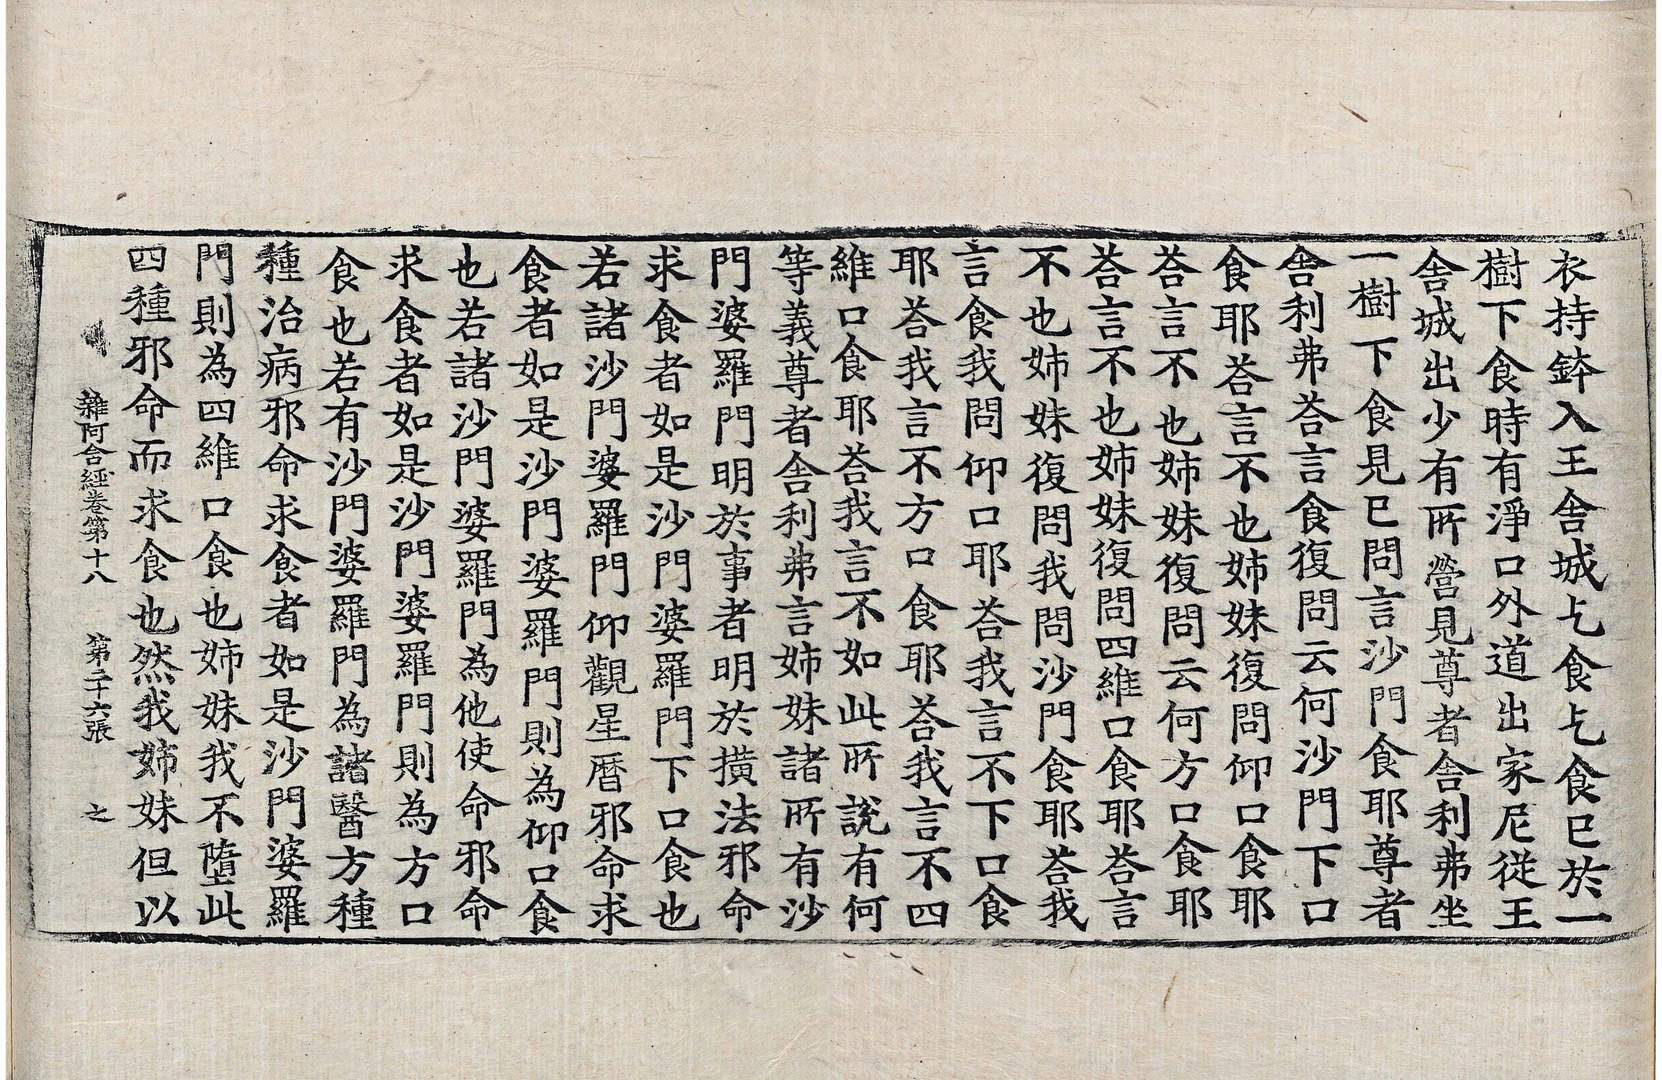 衣持鉢入王舎城乞食乞食已於一
樹下食時有淨口外道出家尼従王
舎城出少有所營見尊者舎利弗坐
一樹下食見已問言沙門食耶尊者
舎利弗荅言食復問云何沙門下口
食耶荅言不也姉妹復問仰口食耶
荅言不也姉妹復問云何方口食耶
荅言不也姉妹復問四維口食耶荅言
不也姉妹復問我問沙門食耶荅我
言食我問仰口耶荅我言不下口食
耶荅我言不方口食耶荅我言不四
維口食耶荅我言不如此所說有何
等義尊者舎利弗言姉妹諸所有沙
門婆羅門明於事者明於撗法邪命
求食者如是沙門婆羅門下口食也
若諸沙門婆羅門仰觀星曆邪命求
食者如是沙門婆羅門則為仰口食
也若諸沙門婆羅門為他使命邪命
求食者如是沙門婆羅門則為方口
食也若有沙門婆羅門為諸醫方種
種治病邪命求食者如是沙門婆羅
門則為四維口食也姉妹我不墮此
四種邪命而求食也然我姉妹但以
雜阿含經卷第十八 第二十六張 之